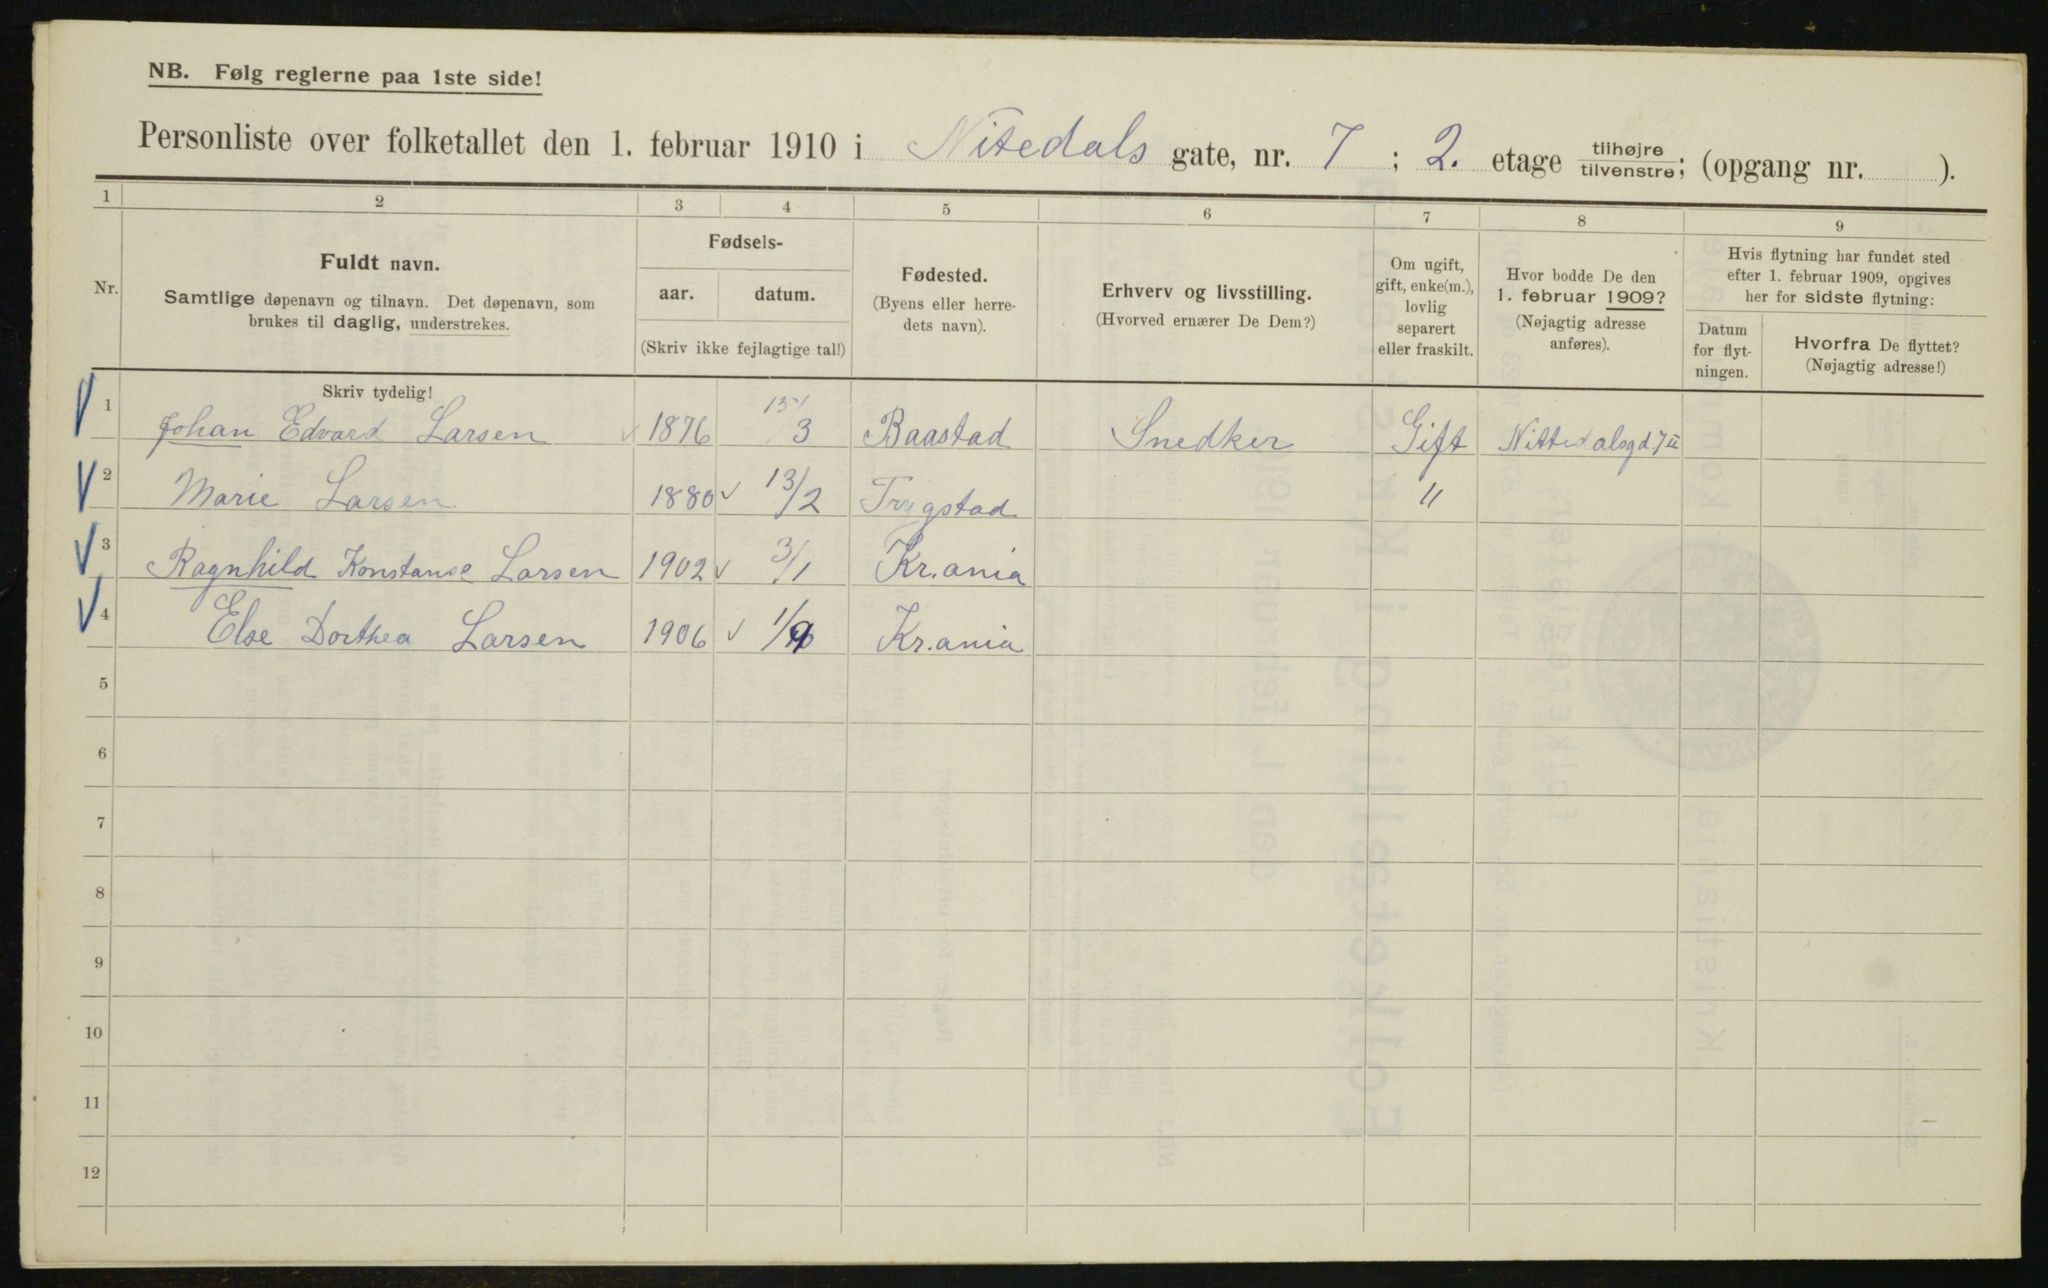 NB. Følg reglerne paa 1ste side!
Personliste over folketallet den 1. februar 1910 i Nitedals gate, nr. 7 ; 2. etage tilhøjre/tilvenstre; (opgang nr. ).
1 2 3 4 5 6 7 8 9
Nr.
Fuldt navn.
Samtlige døpenavn og tilnavn. Det døpenavn, som
brukes til daglig, understrekes.
Fødsels-
aar. datum.
(Skriv ikke fejlagtige tal!)
Fødested.
(Byens eller herre-
dets navn).
Erhverv og livsstilling.
(Hvorved ernærer De Dem?)
Om ugift,
gift, enke(m.),
lovlig
separert
eller fraskilt.
Hvor bodde De den
1. februar 1909?
(Nøjagtig adresse
anføres).
Hvis flytning har fundet sted
efter 1. februar 1909, opgives
her for sidste flytning:
Datum
for flyt-
ningen.
Hvorfra De flyttet?
(Nøjagtig adresse!)
Skriv tydelig!
1 Johan Edvard Larsen 1876 15/3 Baastad Snedker Gift Nittedalsgd 7 II
2 Marie Larsen 1880 13/2 Trygstad "
3 Ragnhild Konstanse Larsen 1902 3/1 Kr.ania
4 Else Dorthea Larsen 1906 1/9 Kr.ania
5
6
7
8
9
10
11
12